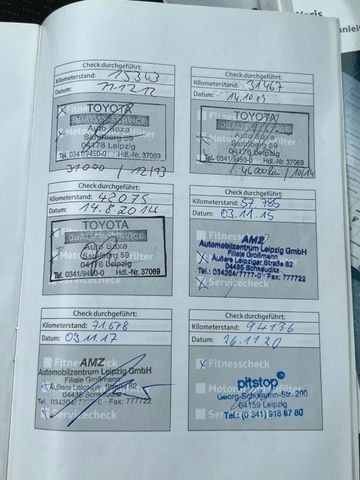 Check durchgeführt:
Kilometerstand: 15343
Datum: 11.12.12
TOYOTA
QUALITY SERVICE
Auto Saxe
Sandberg 59
04178 Leipzig
Tel. 0341/9450-0 Hdl.-Nr. 37069
31000 / 12/13
Check durchgeführt:
Kilometerstand: 31467
Datum: 14.10.13
TOYOTA
Auto Saxe
Sandberg 59
04178 Leipzig
Tel. 0341/9450-0 Hdl.-Nr. 37069
46000km / 10/14
Check durchgeführt:
Kilometerstand: 42075
Datum: 14.8.2014
TOYOTA
QUALITY SERVICE
Auto Saxe
Sandberg 59
04178 Leipzig
Tel. 0341/9450-0 Hdl.-Nr. 37069
Check durchgeführt:
Kilometerstand: 57.785
Datum: 03.11.15
AMZ
Automobilzentrum Leipzig GmbH
Filiale Großmann
Äußere Leipziger Straße 82
04435 Schkeuditz
Tel.: 034204/7777-0 · Fax: 777722
Check durchgeführt:
Kilometerstand: 71.678
Datum: 03.11.17
Fitnesscheck
AMZ
Automobilzentrum Leipzig GmbH
Filiale Großmann
Äußere Leipziger Straße 82
04435 Schkeuditz
Tel.: 034204/7777-0 · Fax: 777722
Servicecheck
Check durchgeführt:
Kilometerstand: 94136
Datum: 26.11.20
Fitnesscheck
pitstop
Georg-Schumann-Str. 200
04159 Leipzig
Tel.: (0 341) 918 87 80
Servicecheck